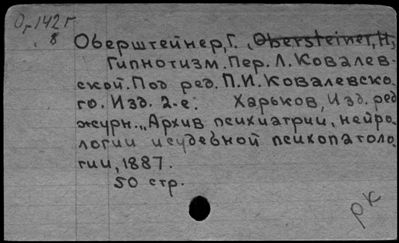 О,-142 г
8
Оберштейнер, Г. , Obersteiner, H,
Гипнотизм. Пер. Л. Ковалев-
ской. Под ред. П.И. Ковалевско-
го. Изд. 2-е. Харьков, Изд. ред
журн. „Архив психиатрии, нейро-
логии и судебной психопатоло-
гии, 1887.
50 стр.
рк